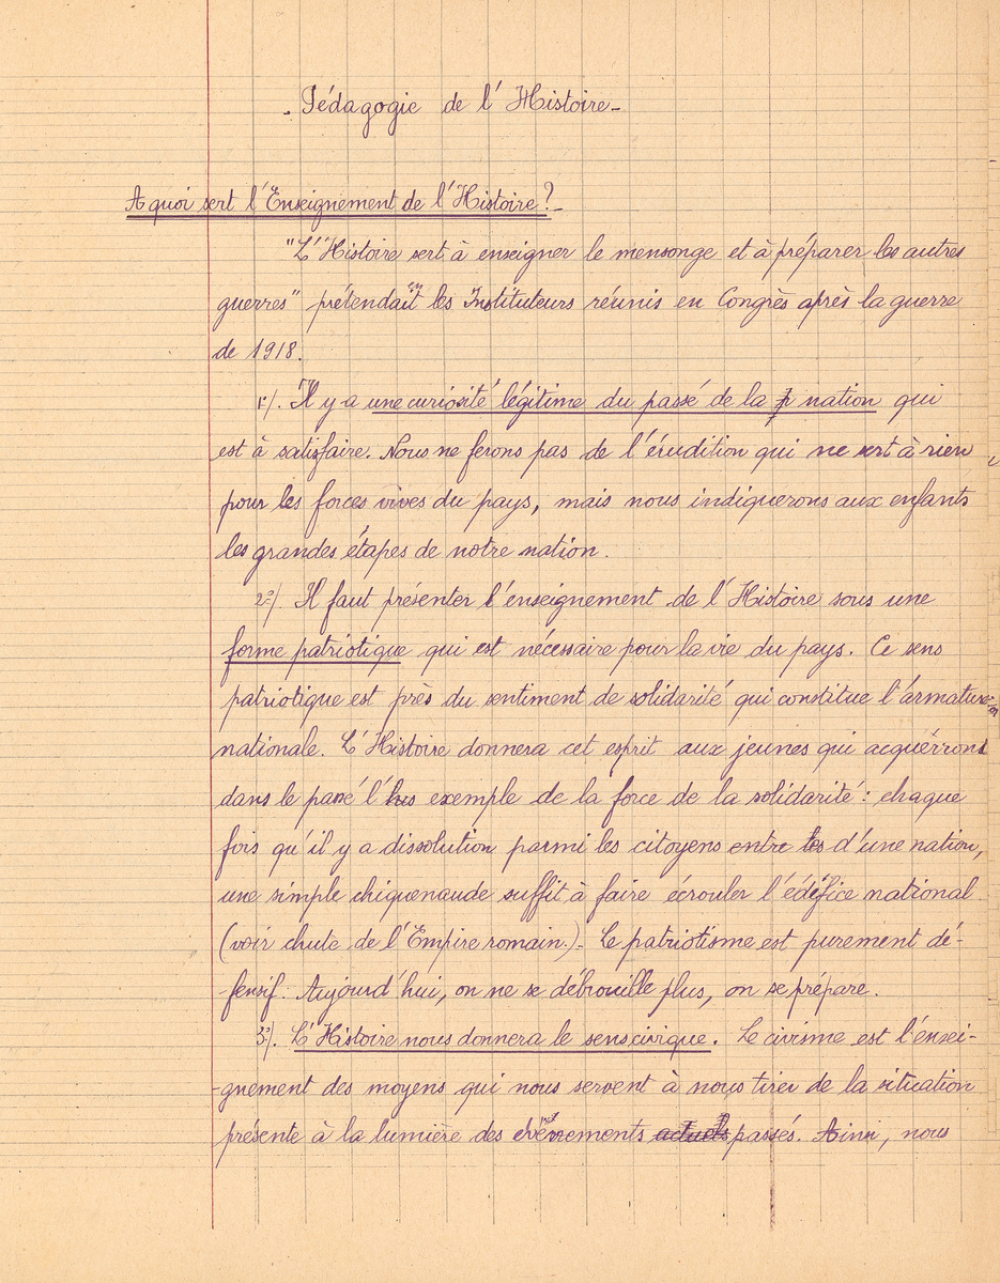 - Pédagogie de l'Histoire -
A quoi sert l'Enseignement de l'Histoire ? -
"L'Histoire sert à enseigner le mensonge et à préparer les autres
guerres" prétendaient les Instituteurs réunis en Congrès après la guerre
de 1918.
1º/. Il y a une curiosité légitime du passé de la nation qui
est à satisfaire. Nous ne ferons pas de l'érudition qui ne sert à rien
pour les forces vives du pays, mais nous indiquerons aux enfants
les grandes étapes de notre nation.
2º/. Il faut présenter l'enseignement de l'Histoire sous une
forme patriotique qui est nécessaire pour la vie du pays. Ce sens
patriotique est près du sentiment de solidarité qui constitue l'armature
nationale. L'Histoire donnera cet esprit aux jeunes qui acquérront
dans le passé l' exemple de la force de la solidarité : chaque
fois qu'il y a dissolution parmi les citoyens entre les d'une nation,
une simple chiquenaude suffit à faire écrouler l'édifice national
(voir chute de l'Empire romain.) - Le patriotisme est purement dé-
-fensif. Aujourd'hui, on ne se débrouille plus, on se prépare.
3º/. L'Histoire nous donnera le sens civique. Le civisme est l'ensei-
-gnement des moyens qui nous servent à nous tirer de la situation
présente à la lumière des évènements actuels passés. Ainsi, nous